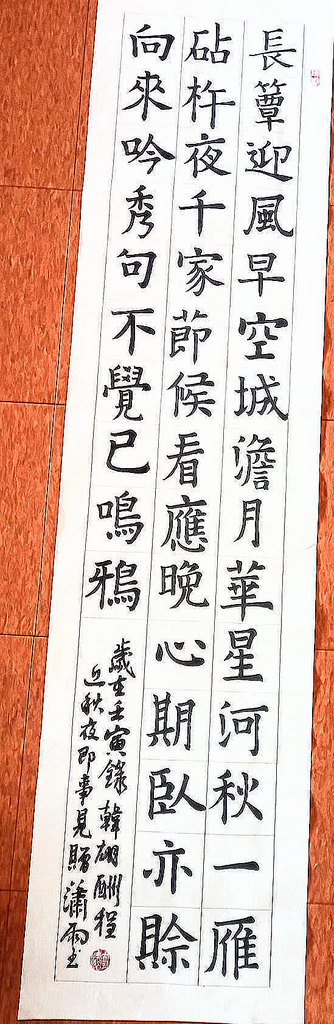 長簟迎風早空城澹月華星河秋一雁
砧杵夜千家節候看應晚心期臥亦賒
向來吟秀句不覺已鳴鴉
歲在壬寅錄韓翃酬程
近秋夜即事見贈瀟雨書